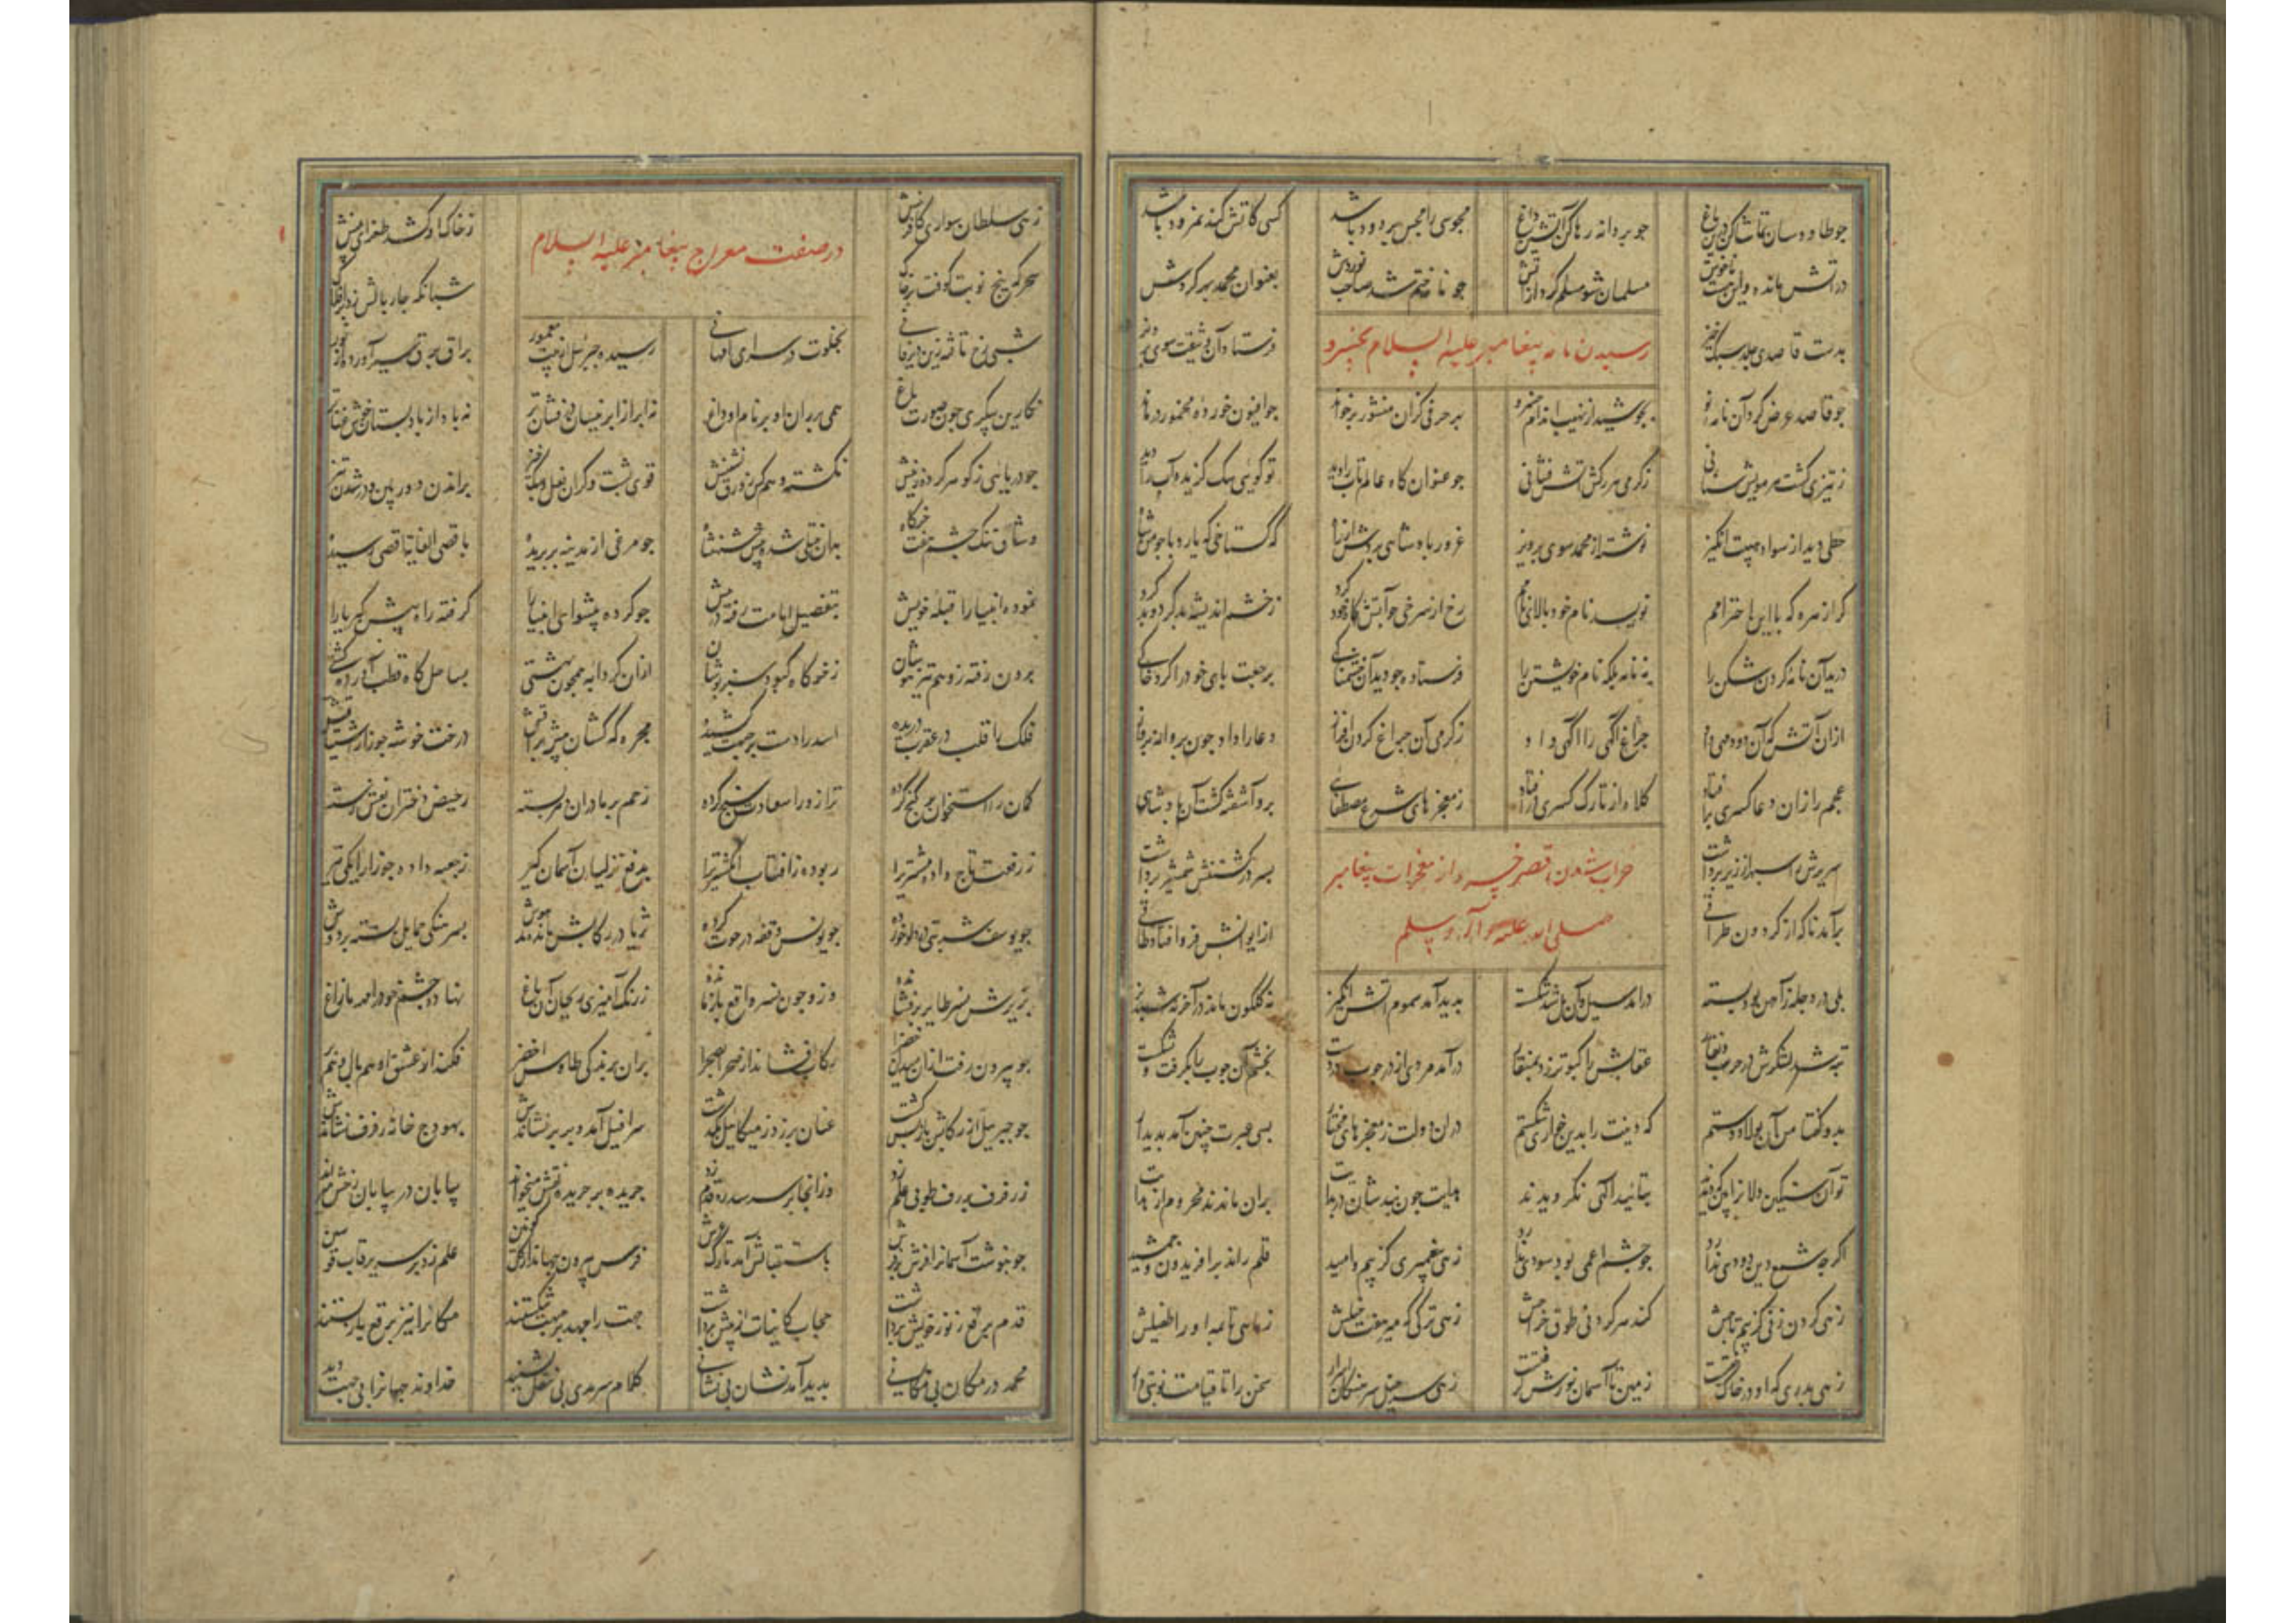 جو طاووسان تماشا کن درین باغ جو پروانه رها کن آتشین داغ مجوسی را مجس پر دود باشد کسی کاتش کند نمرود باشد
در اتش مانده و این هست ناخوش مسلمان شو مسلم گرد از آتش جو نامه ختم شد صاحب نوردش بعنوان محمد مهر کردش
رسیدن نامه پیغامبر علیه السلام بخسرو
بدست قاصدی جلد سبک خیز فرستاد آن وثیقت سوی پرویز
جو قاصد عرض کرد آن نامه نو بجوشید از نهیب اندام خسرو بهر حرفی کزان منشور برخواند جو افیون خورده مخمور درماند
ز تیزی گشت هر مویش سنانی ز گرمی هر رگش اتش فشانی جو عنوان کاه عالم تاب را دید تو گویی سک گزیده آب را دید
خطی دید از سواد هیبت انگیز نوشته از محمد سوی پرویز غرور پادشاهی بردش از راه که گستاخی که یارد با جو من شاه
کرا زهره که با این احترامم نویسد نام خود بالای نامم رخ از سرخی جو آتشگاه خود کرد ز خشم اندیشه بد کرد و بد کرد
درید آن نامه گردن شکن را نه نامه بلکه نام خویشتن را فرستاده جو دید آن خشمناکی برجعت پای خود را کرد خاکی
ازان آتش که آن دود می داد جراغ آگهی را آگهی داد ز گرمی آن جراغ گردن افراز دعا را داد جون پروانه پرواز
عجم را زان دعا کسری بر افتاد کلاه از تارک کسری در افتاد ز معجزهای شرع مصطفایی برو آشفته گشت آن پادشاهی
خراب شدن قصر خسرو از معجزات پیغامبر
صلی الله علیه و آله و سلم
سریرش را سپهر از زیر برداشت پسر در کشتنش شمشیر برداشت
برآمد ناگه از گردون طراقی از ایوانش فرو افتاد طاقی
پلی در دجله ز آهن بود بسته درامد سیل و آن پل شد شکسته بدید آمد سموم اتش انگیز نه گلگون ماند در آخر نه شبدیز
تبه شد لشکرش در حرب ذیقار عقابش را کبوتر زد بمنقار درآمد مردی از در جوب در دست بخشم آن جوب را بگرفت و بشکست
بدو گفتا من آن پولاد دستم که دینت را بدین خواری شکستم دران دولت ز معجزهای مختار بسی عبرت جنین آمد پدیدار
تو آن سنگین دلانرا بین که دیدند بتائید الهی نگرویدند جون نبد شان در بدایت بران ماندند محروم از
اگر جه شمع دین دودی ندارد جو جشم اعمی بود سودی ندارد زهی پیغمبری کز بیم و امید قلم راند بر افریدون و جمشید
زهی گردن زنی کز بیم تاجش کند هر گردنی طوق خراجش زهی ترکی که میر هفت خیلش ز ماهی تا بماه او را طفیلش
زهی بدری که او در خاک خفتست زمین تا آسمان نورش گرفتست زهی سرخیل سرهنگان اسرار سخن را تا قیامت نوبتی دار
زهی سلطان سواری کافرینش ز خاک او کشد طغرای بینش
در صفت معراج پیغامبر علیه السلام
سحرگه پنج نوبت کوفت بر خاک شبانگه جار بالش زد بر افلاک
شبی رخ تافته زین دیر فانی بخلوت در سرای ام هانی رسیده جبرئیل از بیت معمور براق برق سیر آورده از نور
نگارین پیکری جون صورت باغ نه ابر از ابر نیسان درفشان تر نه باد از باد بستان خوش عنان تر
جو دریایی ز گوهر کرده زینش نگشته وهم کس زورق نشینش قوی پشت و گران نعل و سبک خیز براندن دوربین و در شدن تیز
وشاق تنک جشم هفت خرگاه بدان ختلی شده پیش شهنشاه جو مرغی از مدینه بر پریده باقصی الغایة اقصی رسیده
نموده انبیا را قبله خویش بتفضیل امامت رفته در پیش جو کرده پیشوایی انبیا را گرفته راه پیش کبریا را
برون رفته ز وهم تیز هوشان ز خرگاه کبود سبز پوشان ازان گردابه همجون بهشتی بساحل گاه قطب آورده کشتی
فلک را قلب در عقرب دریده اسد را دست بر جبهت کشیده مجره که کشان پیش براقش درخت خوشه جوزا ز اشتیاقش
کمان را استخوان بر گنج کرده ترازو را سعادت سنج کرده رحم بر مادران دهر بسته ز حیض دختران نعش رسته
ز رفعت تاج داده مشتری را ربوده ز آفتاب انگشتری را بدفع نزلیان آسمان گیر ز جعبه داده جوزا را یکی تیر
جو یوسف شربتی در دلو خورده جو یونس وقفه در حوت کرده ثریا در رکابش مانده مدهوش بسرهنگی حمایل بسته بر دوش
بزیرش نسر طایر پر فشانده وزو جون نسر واقع باز مانده ز رنگ آمیزی ریحان آن باغ نهاده جشم خود را مهر ما زاغ
جو بیرون رفت ازان میدان خضرا رکاب افشاند از صحرا بصحرا بران پرندگی طاوس اخضر فکند از عشق او هم بال و هم پر
جو جبریل از رکابش باز پس گشت عنان بر زد ز میکائیل بگذشت سرافیل آمد و بر پر نشاندش بهودج خانه رفرف نشاندش
ز رفرف بر رف طوبی علم زد وز انجا بر سر سدره قدم زد جریده بر جریده نقش میخواند بیابان در بیابان رخش میراند
جو بنوشت آسمانرا فرش بر فرش باستقبالش آمد تارک عرش فرس بیرون جهاند از کل کونین علم زد بر سریر قاب قوسین
قدم برقع ز نور خویش برداشت حجاب کاینات از پیش برداشت جهت را جعد بر جبهت شکستند مکانرا نیز برقع باز بستند
محمد در مکان بی مکانی بدید آمد نشان بی نشانی کلام سرمدی بی نقل بشنید خداوند جهانرا بی جهت دید